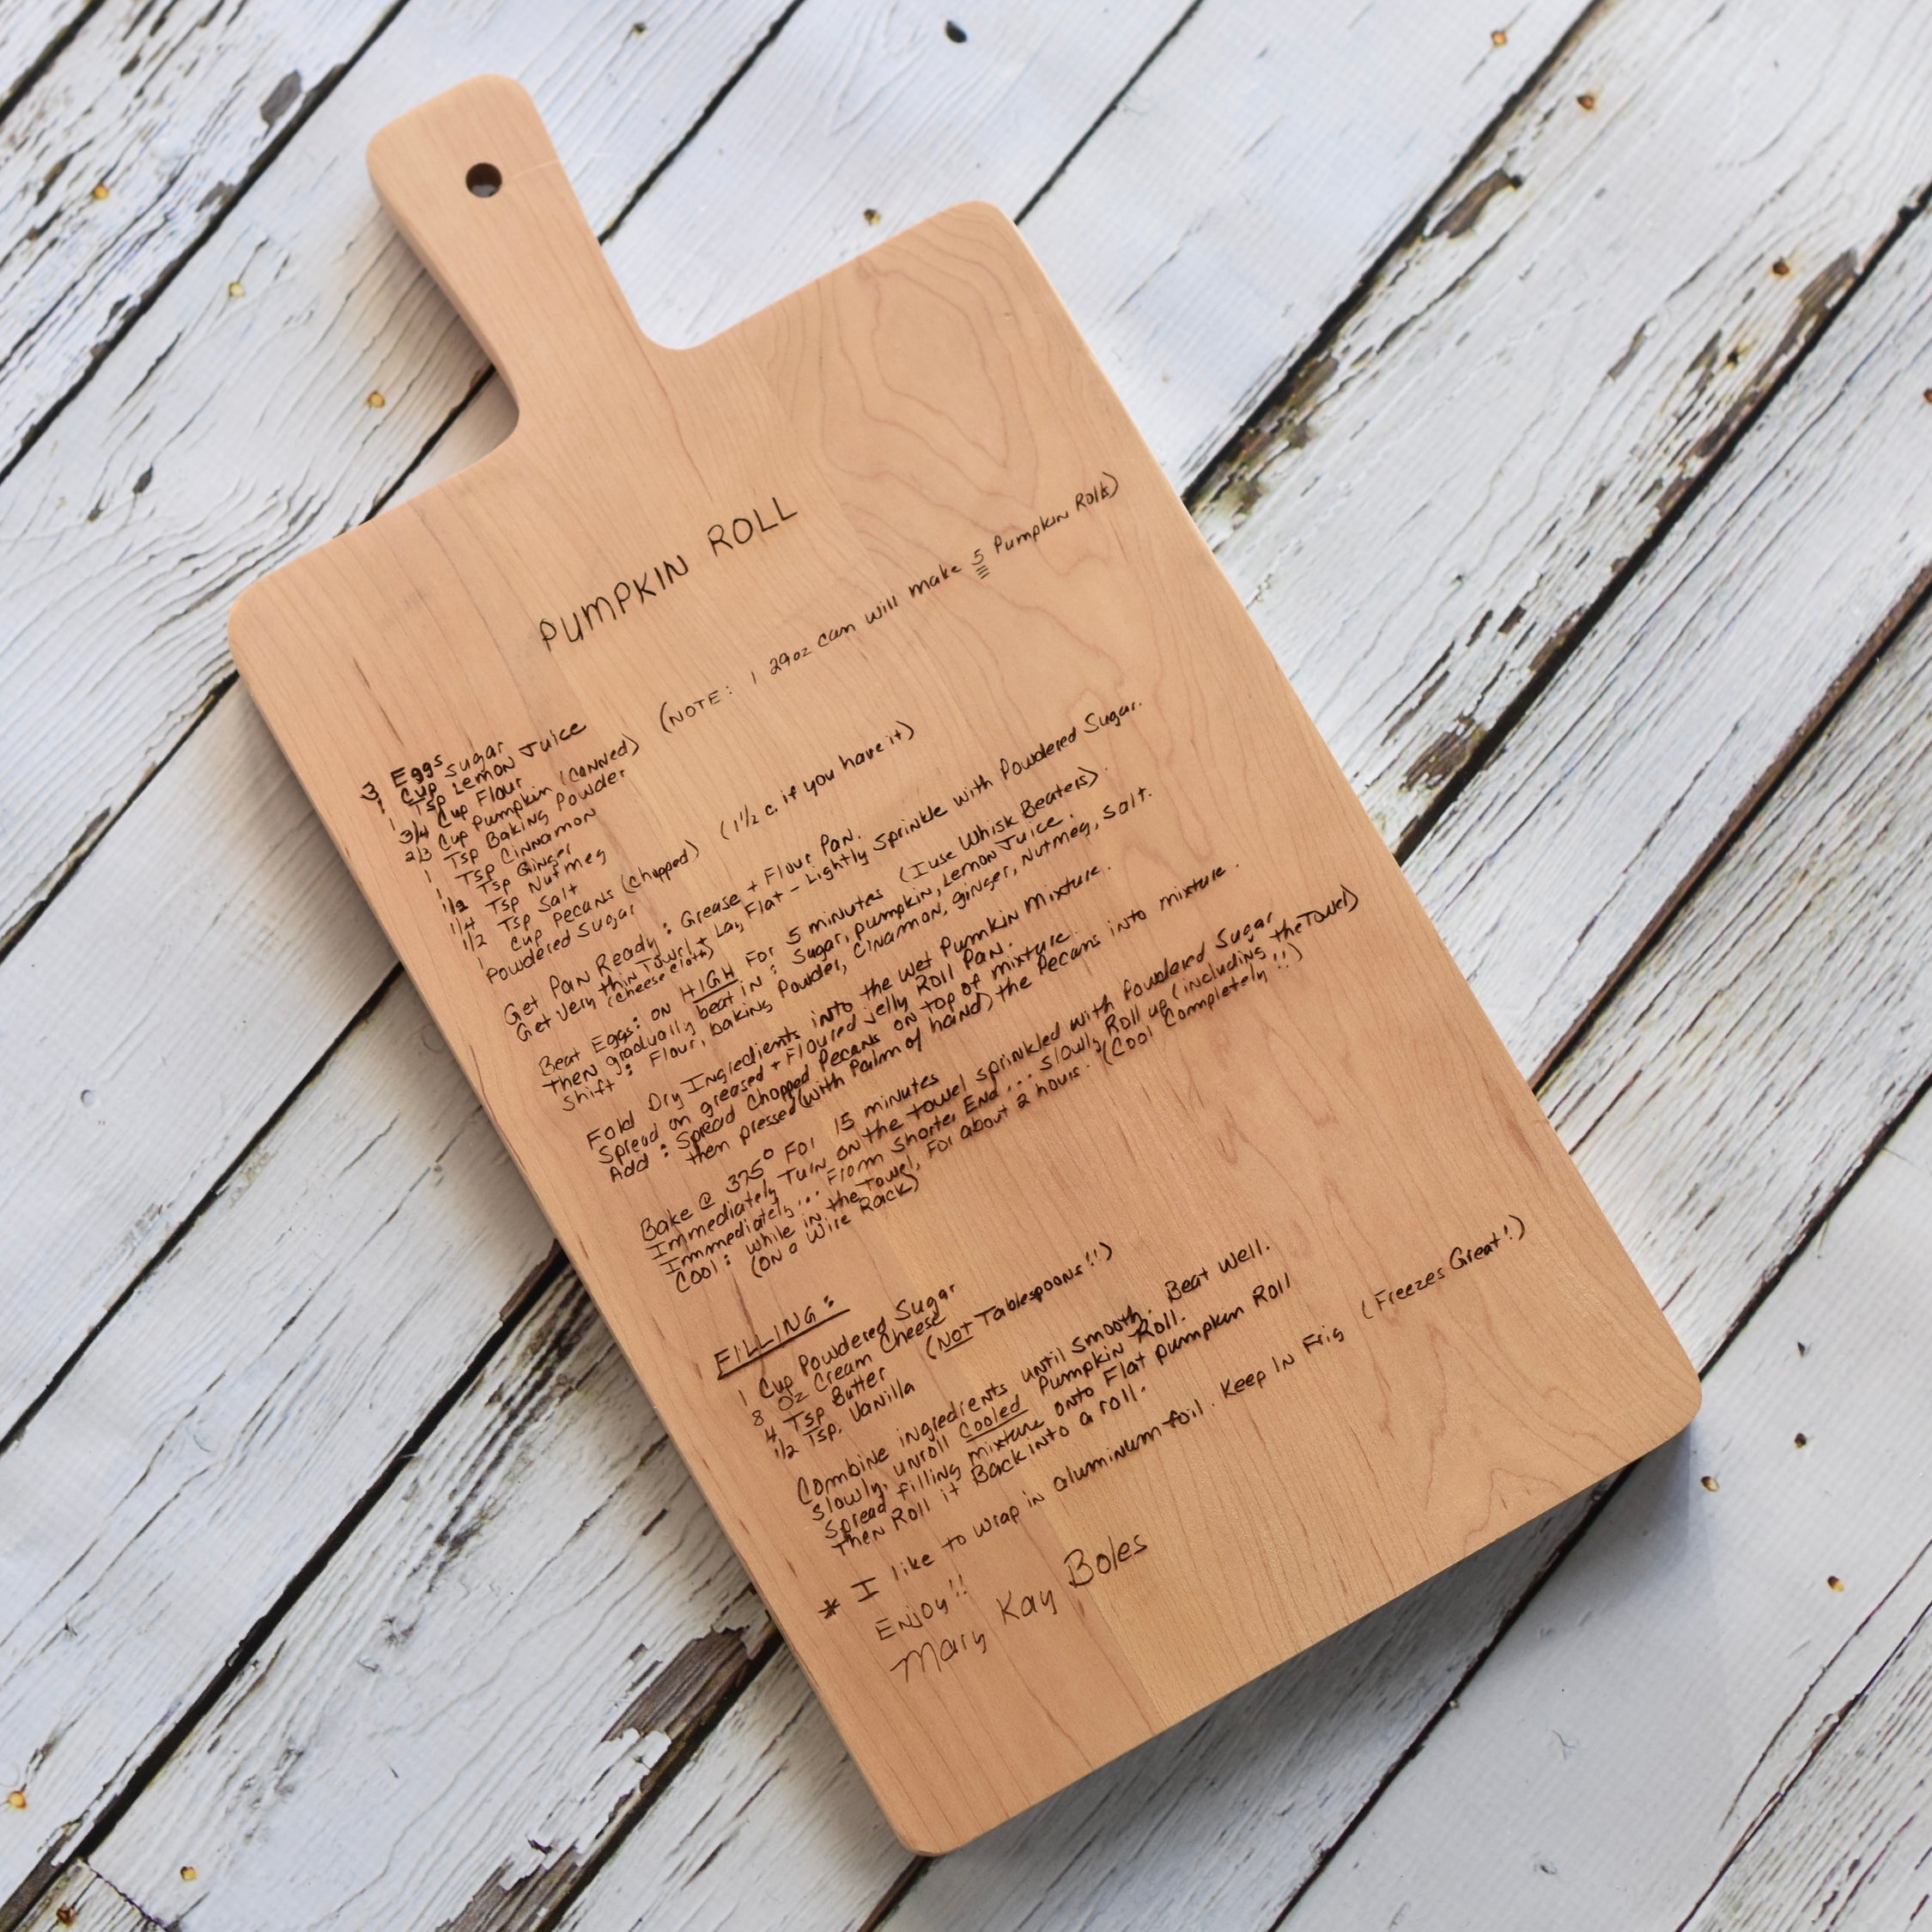 PUMPKIN ROLL
3 Eggs
1 Cup Sugar
1 Tsp Lemon Juice
3/4 Cup Flour
2/3 Cup Pumpkin (canned) (NOTE: 1 29oz can will make 5 Pumpkin Rolls)
1 Tsp Baking Powder
1 Tsp Cinnamon
1/2 Tsp Ginger
1/4 Tsp Nutmeg
1/2 Tsp Salt
1 Cup Pecans (chopped) (1 1/2 c. if you have it)
Powdered Sugar
Get Pan Ready: Grease + Flour Pan.
Get very thin Towel + Lay Flat - Lightly Sprinkle with Powdered Sugar.
(cheese cloth)
Beat Eggs: on HIGH For 5 minutes (I use Whisk Beaters).
Then gradually beat in: Sugar, pumpkin, Lemon Juice.
Shift: Flour, baking Powder, Cinamon, ginger, Nutmeg, Salt.
Fold Dry Ingredients into the wet Pumkin Mixture.
Spread on greased + Floured jelly Roll Pan.
Add: Spread Chopped Pecans on top of mixture.
then pressed (with Palm of hand) the Pecans into mixture.
Bake @ 375° For 15 minutes
Immediately Turn on the towel sprinkled with Powdered Sugar
Immediately... From Shorter End... Slowly Roll up (including the Towel)
Cool: while in the Towel, For about 2 hours. (Cool Completely!!)
(ON a Wire Rack)
FILLING:
1 Cup Powdered Sugar
8 Oz Cream Cheese
4 Tsp Butter (NOT Tablespoons!!)
1/2 Tsp. Vanilla
Combine ingredients until smooth. Beat Well.
Slowly, unroll Cooled Pumpkin Roll.
Spread filling mixture onto Flat pumpkin Roll
Then Roll it Back into a roll.
* I like to wrap in aluminum foil. Keep In Frig (Freezes Great!)
Enjoy!!
Mary Kay Boles